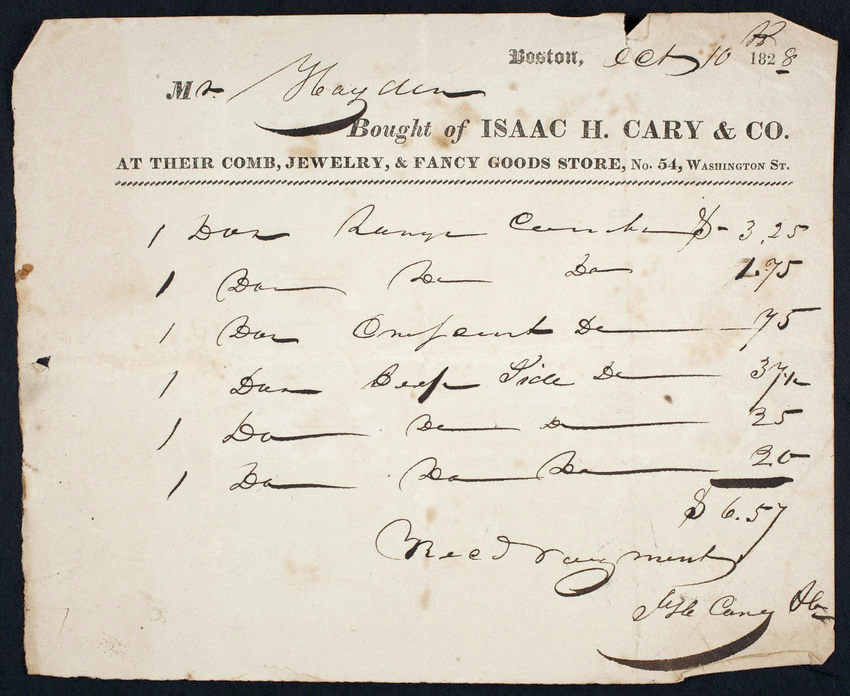 Boston, Oct 10th 1828
Mr. Hayden
Bought of ISAAC H. CARY & CO.
AT THEIR COMB, JEWELRY, & FANCY GOODS STORE, No. 54, Washington St.
1 Doz Combs $ 3.25
1 Do Do Do 1.75
1 Doz Do 75
1 Doz Deep Side Do 37 1/2
1 Do Do Do 25
1 Do Do Do 20
$ 6.57
Recd Payment
I H Cary & Co